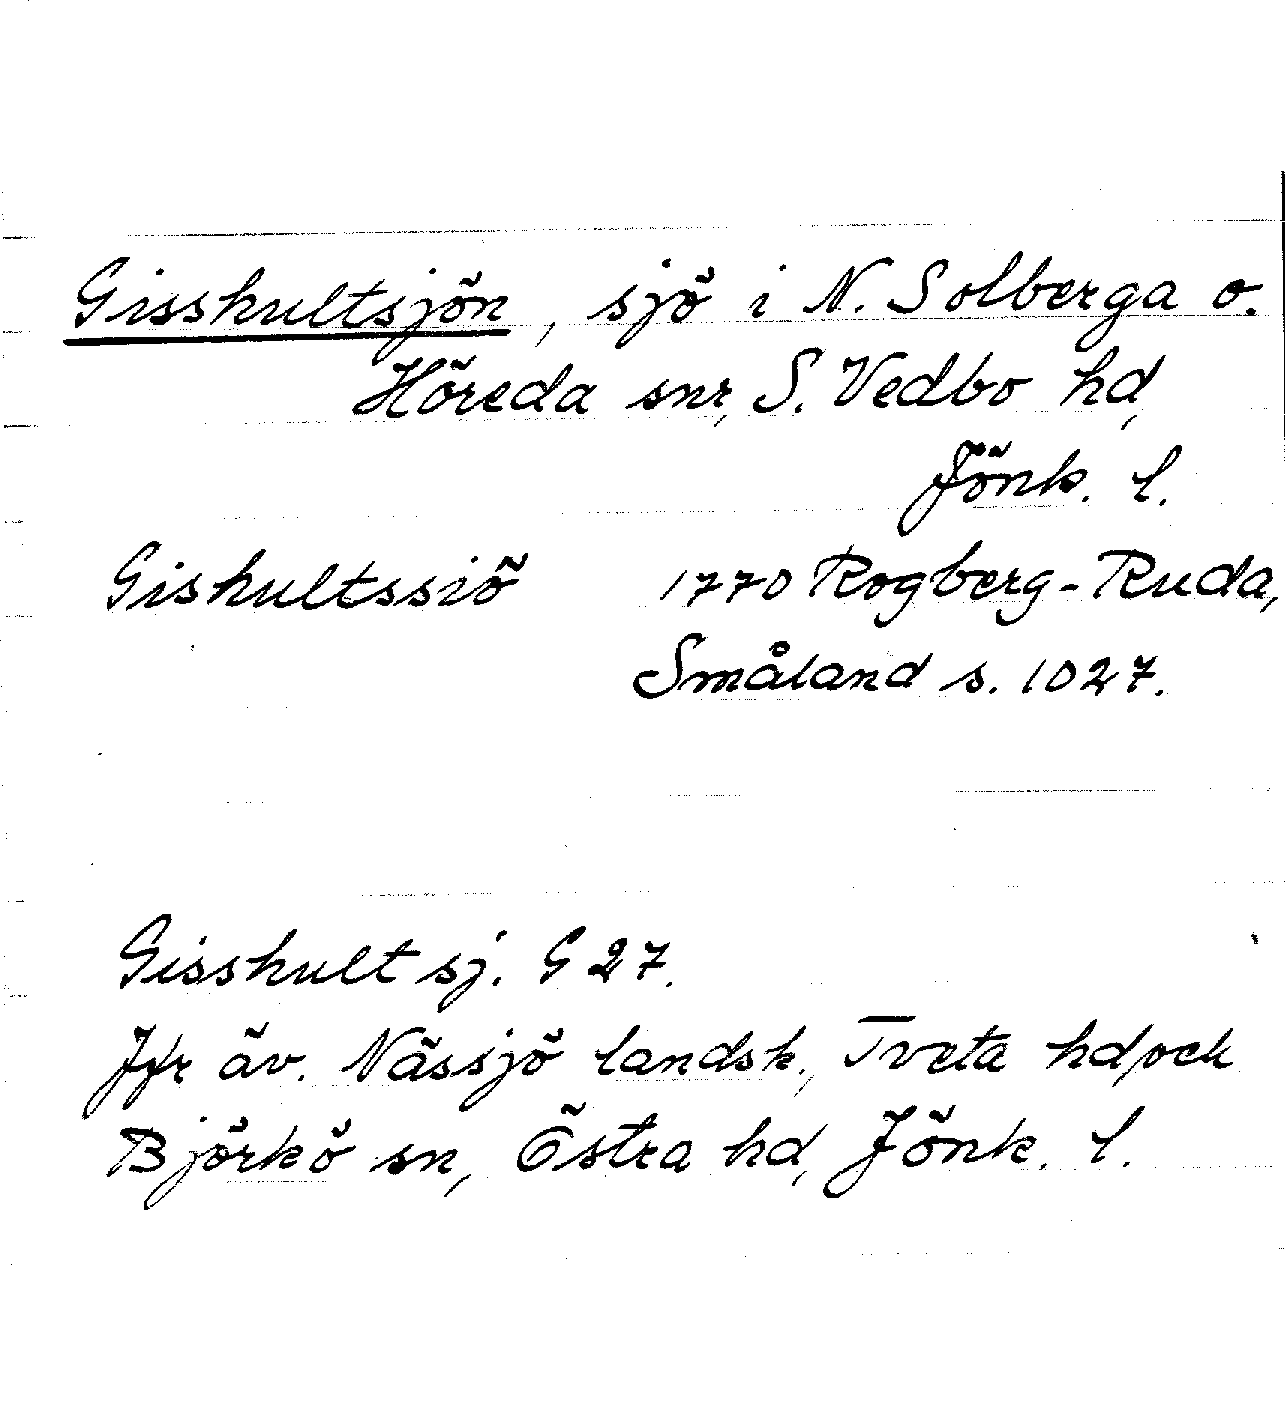 Gisshultsjön, sjö i N. Solberga o.
Höreda snr, S. Vedbo hd,
Jönk. l.
Gishultssiö 1770 Rogberg-Ruda,
Småland s. 1027.
Gisshult sj. G 27.
Jfr äv. Nässjö landsk., Tveta hd, och
Björkö sn, Östra hd, Jönk. l.